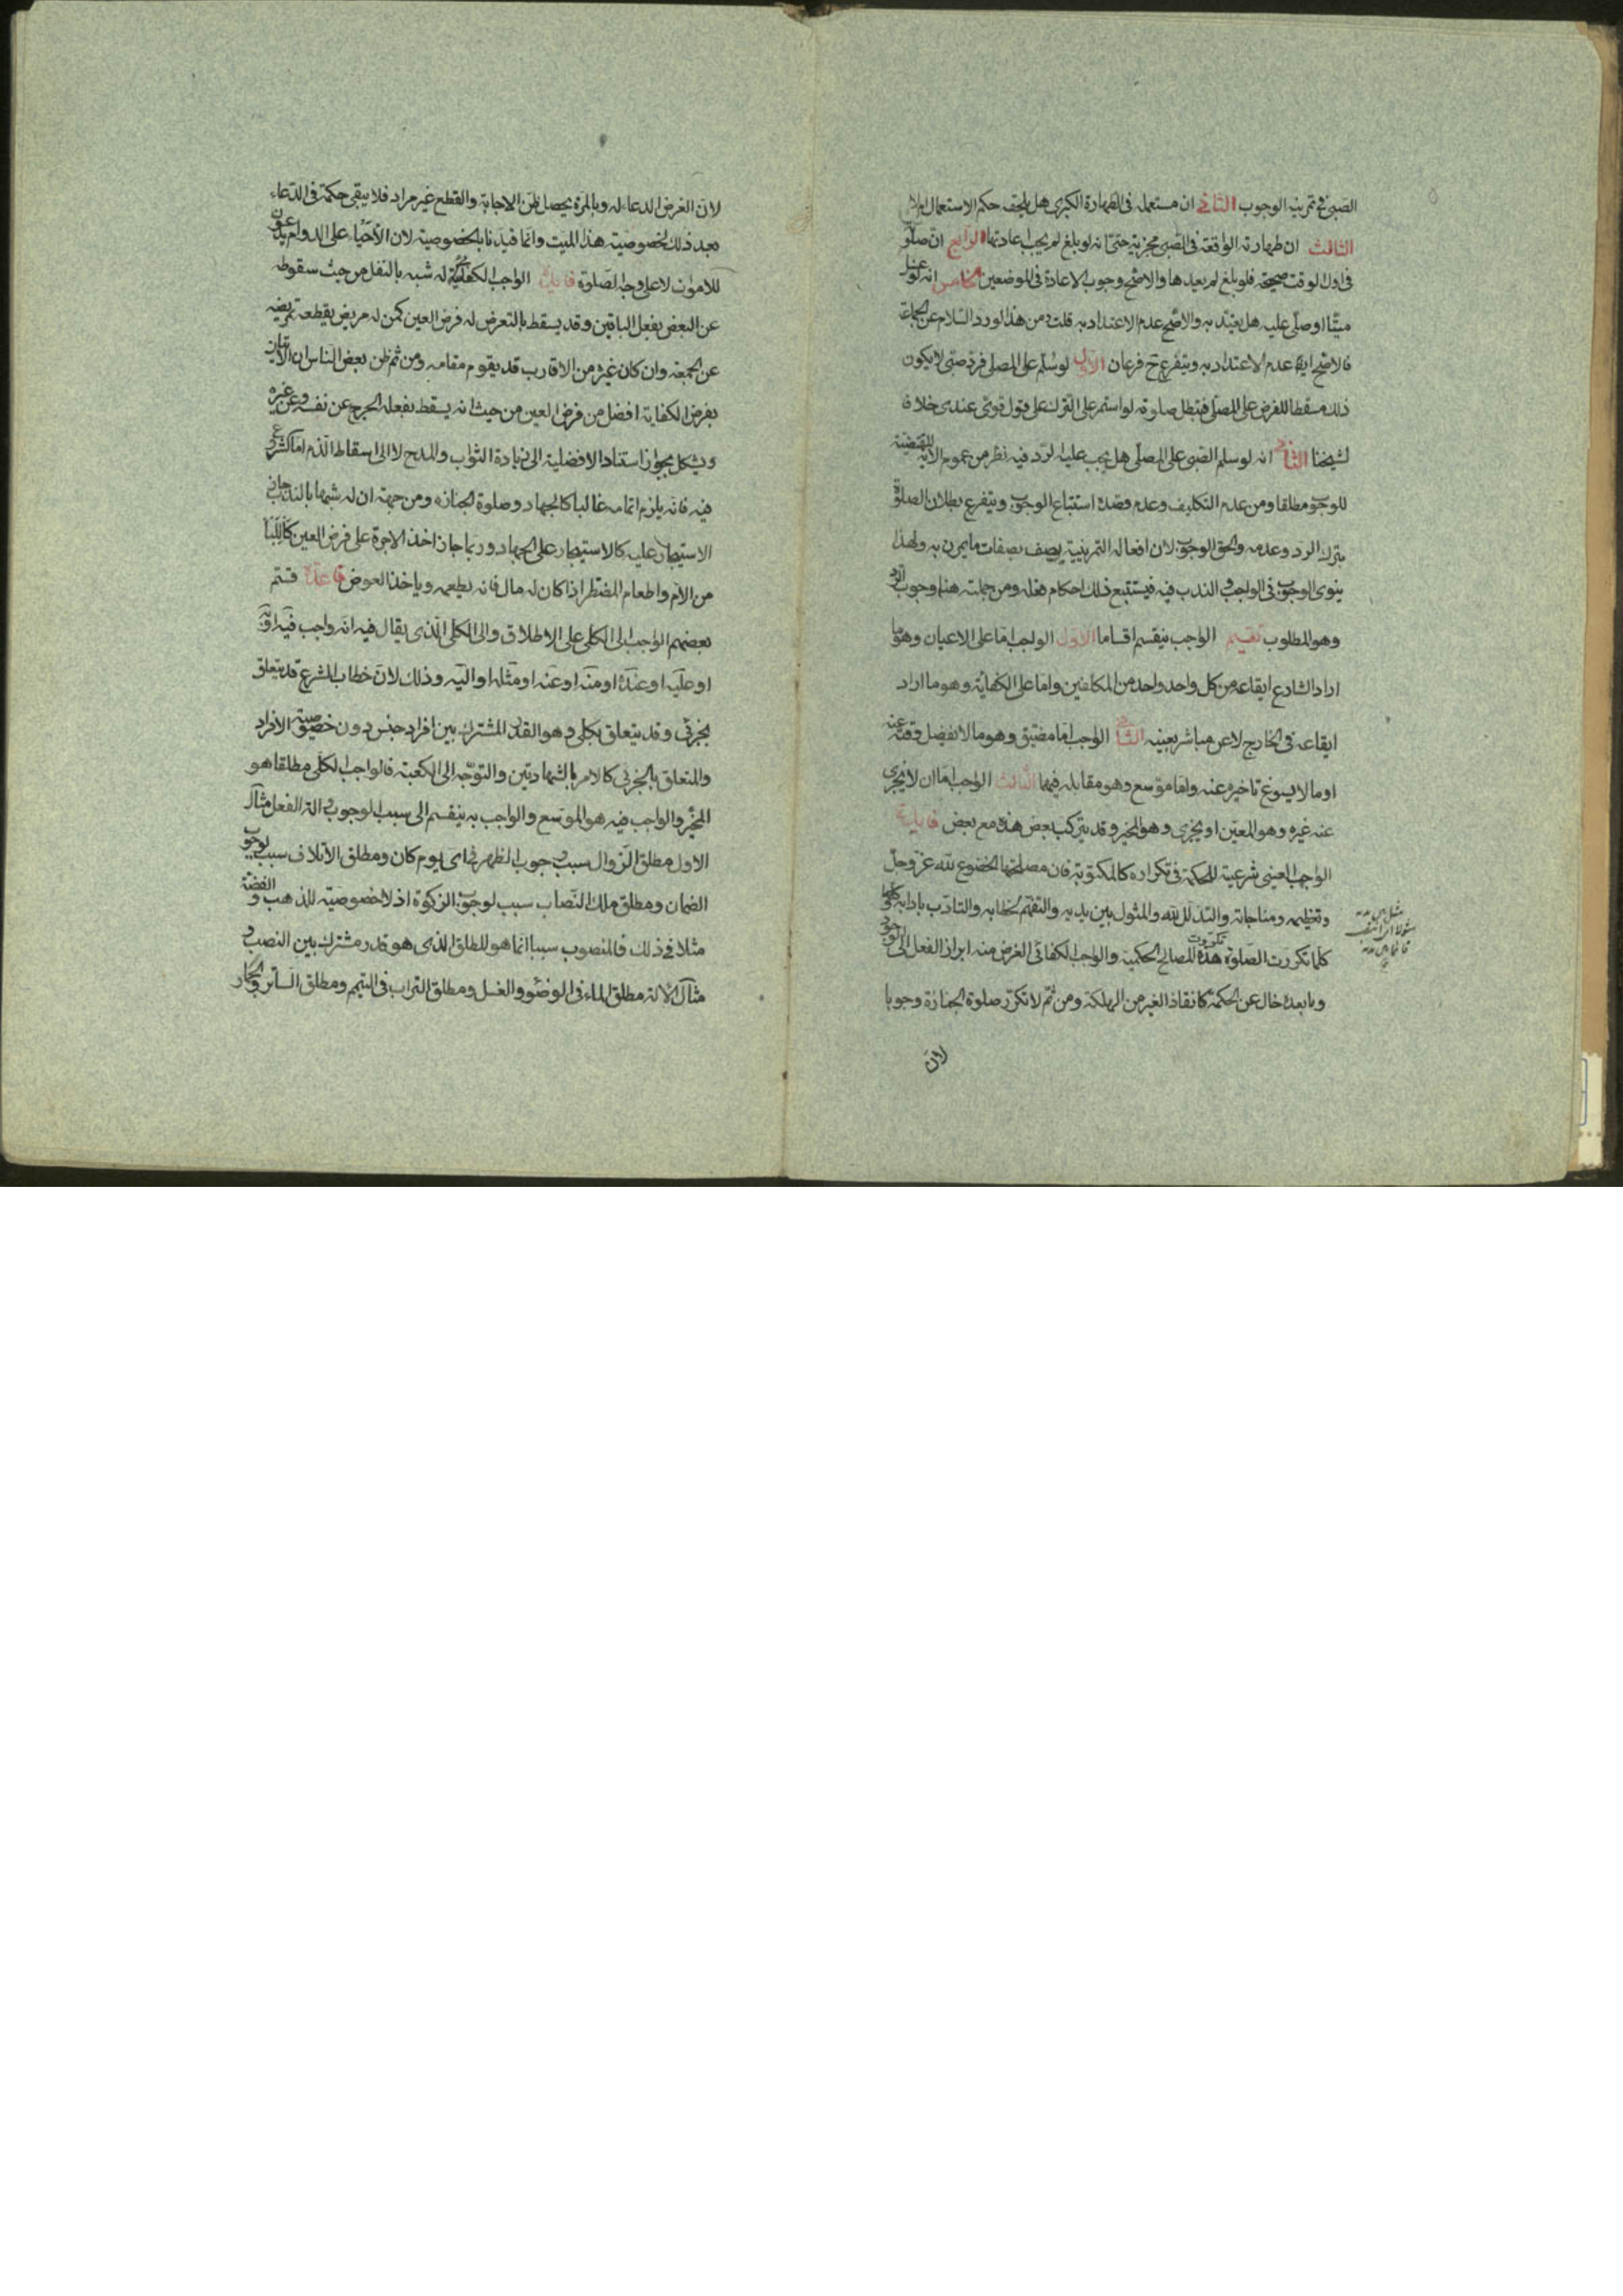 الصبى ثم تمرينه الوجوب الثانى ان مستعمله فى الطهارة الكبرى هل يلحقه حكم الاستعمال ام لا
الثالث ان طهارته الواقعة فى الصبى مجزية حتى انه لو بلغ لم يجب اعادتها الرابع ان صلوته
فى اول الوقت صحيحة فلو بلغ لم يعيدها والاصح وجوب الاعادة فى الموضعين الخامس انه لو غسل
ميتا او صلى عليه هل يعتد به والاصح عدم الاعتداد به قلت ومن هذا لو رد السلام عن الجماعة
فالاصح ايضا عدم الاعتداد به ويتفرع ح فرعان الاول لو سلم على المصلى فرد صبى لا يكون
ذلك مسقطا للفرض على المصلى فتبطل صلوته لو استمر على الترك على قول قوى عندى خلافا
لشيخنا الثانى انه لو سلم الصبى على المصلى هل يجب عليه الرد فيه نظر من عموم الاية المقتضية
للوجوب مطلقا ومن عدم التكليف وعدم قصده استتباع الوجوب ويتفرع بطلان الصلوة
بترك الرد وعدمه والحق الوجوب لان افعاله التمرينية يوصف بصفات ما يمرن به ولهذا
ينوى الوجوب فى الواجب والندب فيه فيستتبع ذلك احكام فعله ومن جملته هنا وجوب الرد
وهو المطلوب تقسيم الواجب ينقسم اقساما الاول الواجب اما على الاعيان وهو ما
اراد الشارع ايقاعه من كل واحد واحد من المكلفين واما على الكفاية وهو ما اراد
ايقاعه فى الخارج لا عن مباشر بعينه الثانى الواجب اما مضيق وهو ما لا يفضل وقته عنه
او ما لا يسوغ تاخيره عنه واما موسع وهو مقابله فيهما الثالث الواجب اما ان لا يجزى
عنه غيره وهو المعين او يجزى وهو المخير وقد يتركب بعض هذه مع بعض فايدة
الواجب العينى شرعيته للحكمة فى تكراره كالمكتوبة فان مصلحتها الخضوع لله عز وجل
وتعظيمه ومناجاته والتذلل لله والمثول بين يديه والتفهم لخطابه والتادب بادابه وكلما
كلما تكررت الصلوة تكررت هذه المصالح الحكمية والواجب الكفائى الغرض منه ابراز الفعل الى الوجود
وما بعده خال عن الحكمة كانقاذ الغير من الهلكة ومن ثم لا تكرر صلوة الجنازة وجوبا
لان
لان الغرض الدعاء له وبالمرة يحصل ظن الاجابة والقطع غير مراد فلا يبقى حكمة فى الدعاء
بعد ذلك لخصوصية هذا الميت وانما قيدنا بالخصوصية لان الاحياء على الدوام يدعون
للاموات لا على وجه الصلوة فايدة الواجب الكفائى له شبه بالنفل من حيث سقوطه
عن البعض بفعل الباقين وقد يسقط بالتعرض له فرض العين كمن له مريض يقطعه تمريضه
عن الجمعة وان كان غيره من الاقارب قد يقوم مقامه ومن ثم ظن بعض الناس ان الاتيان
بفرض الكفاية افضل من فرض العين من حيث انه يسقط بفعله الحرج عن نفسه وعن غيره
ويشكل بجواز استناد الافضلية الى زيادة الثواب والمدح لا الى اسقاط الذم اما الشروع
فيه فانه يلزم اتمامه غالبا كالجهاد وصلوة الجنازة ومن جهة ان له شبها بالندب جاز
الاستيجار عليه كالاستيجار على الجهاد وربما جاز اخذ الاجرة على فرض العين كاللبأ
من الام واطعام المضطر اذا كان له مال فانه يطعمه وياخذ العوض قاعدة قسم
بعضهم الواجب الى الكلى على الاطلاق والى الكلى الذى يقال فيه انه واجب فيه او به
او عليه او عنده او منه او عنه او مثله او اليه وذلك لان خطاب الشرع قد يتعلق
بجزئى وقد يتعلق بكلى وهو القدر المشترك بين افراد جنس دون خصوصية الافراد
والمتعلق بالجزئى كالامر بالشهادتين والتوجه الى الكعبة فالواجب الكلى مطلقا هو
المخير والواجب فيه هو الموسع والواجب به ينقسم الى سبب الوجوب والة الفعل مثال
الاول مطلق الزوال سبب وجوب الظهر فى اى يوم كان ومطلق الاتلاف سبب لوجوب
الضمان ومطلق ملك النصاب سبب لوجوب الزكوة اذ لا خصوصية للذهب والفضة
مثلا فى ذلك فالمنصوب سببا انما هو المطلق الذى هو قدر مشترك بين النصب و
مثال الالة مطلق الماء فى الوضوء والغسل ومطلق التراب فى التيمم ومطلق الساتر والجمار